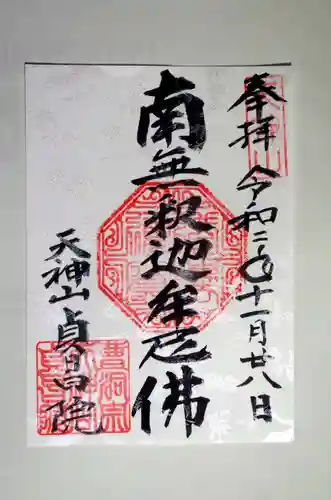 奉拝 令和二年十一月廿八日
南無釈迦牟尼佛
天神山 貞昌院
曹洞宗